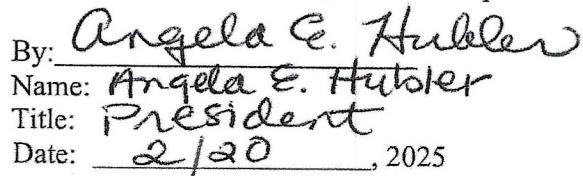 By: Angela E. Hubler
Name: Angela E. Hubler
Title: President
Date: 2/20, 2025